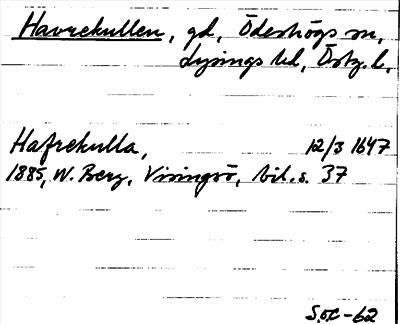 Havrekullen, gd, Ödeshögs sn,
Lysings hd, Östg. l.
Hafrekulla, 12/3 1647
1885, W. Berg, Visingsö, bil. s. 37
S.OC-62